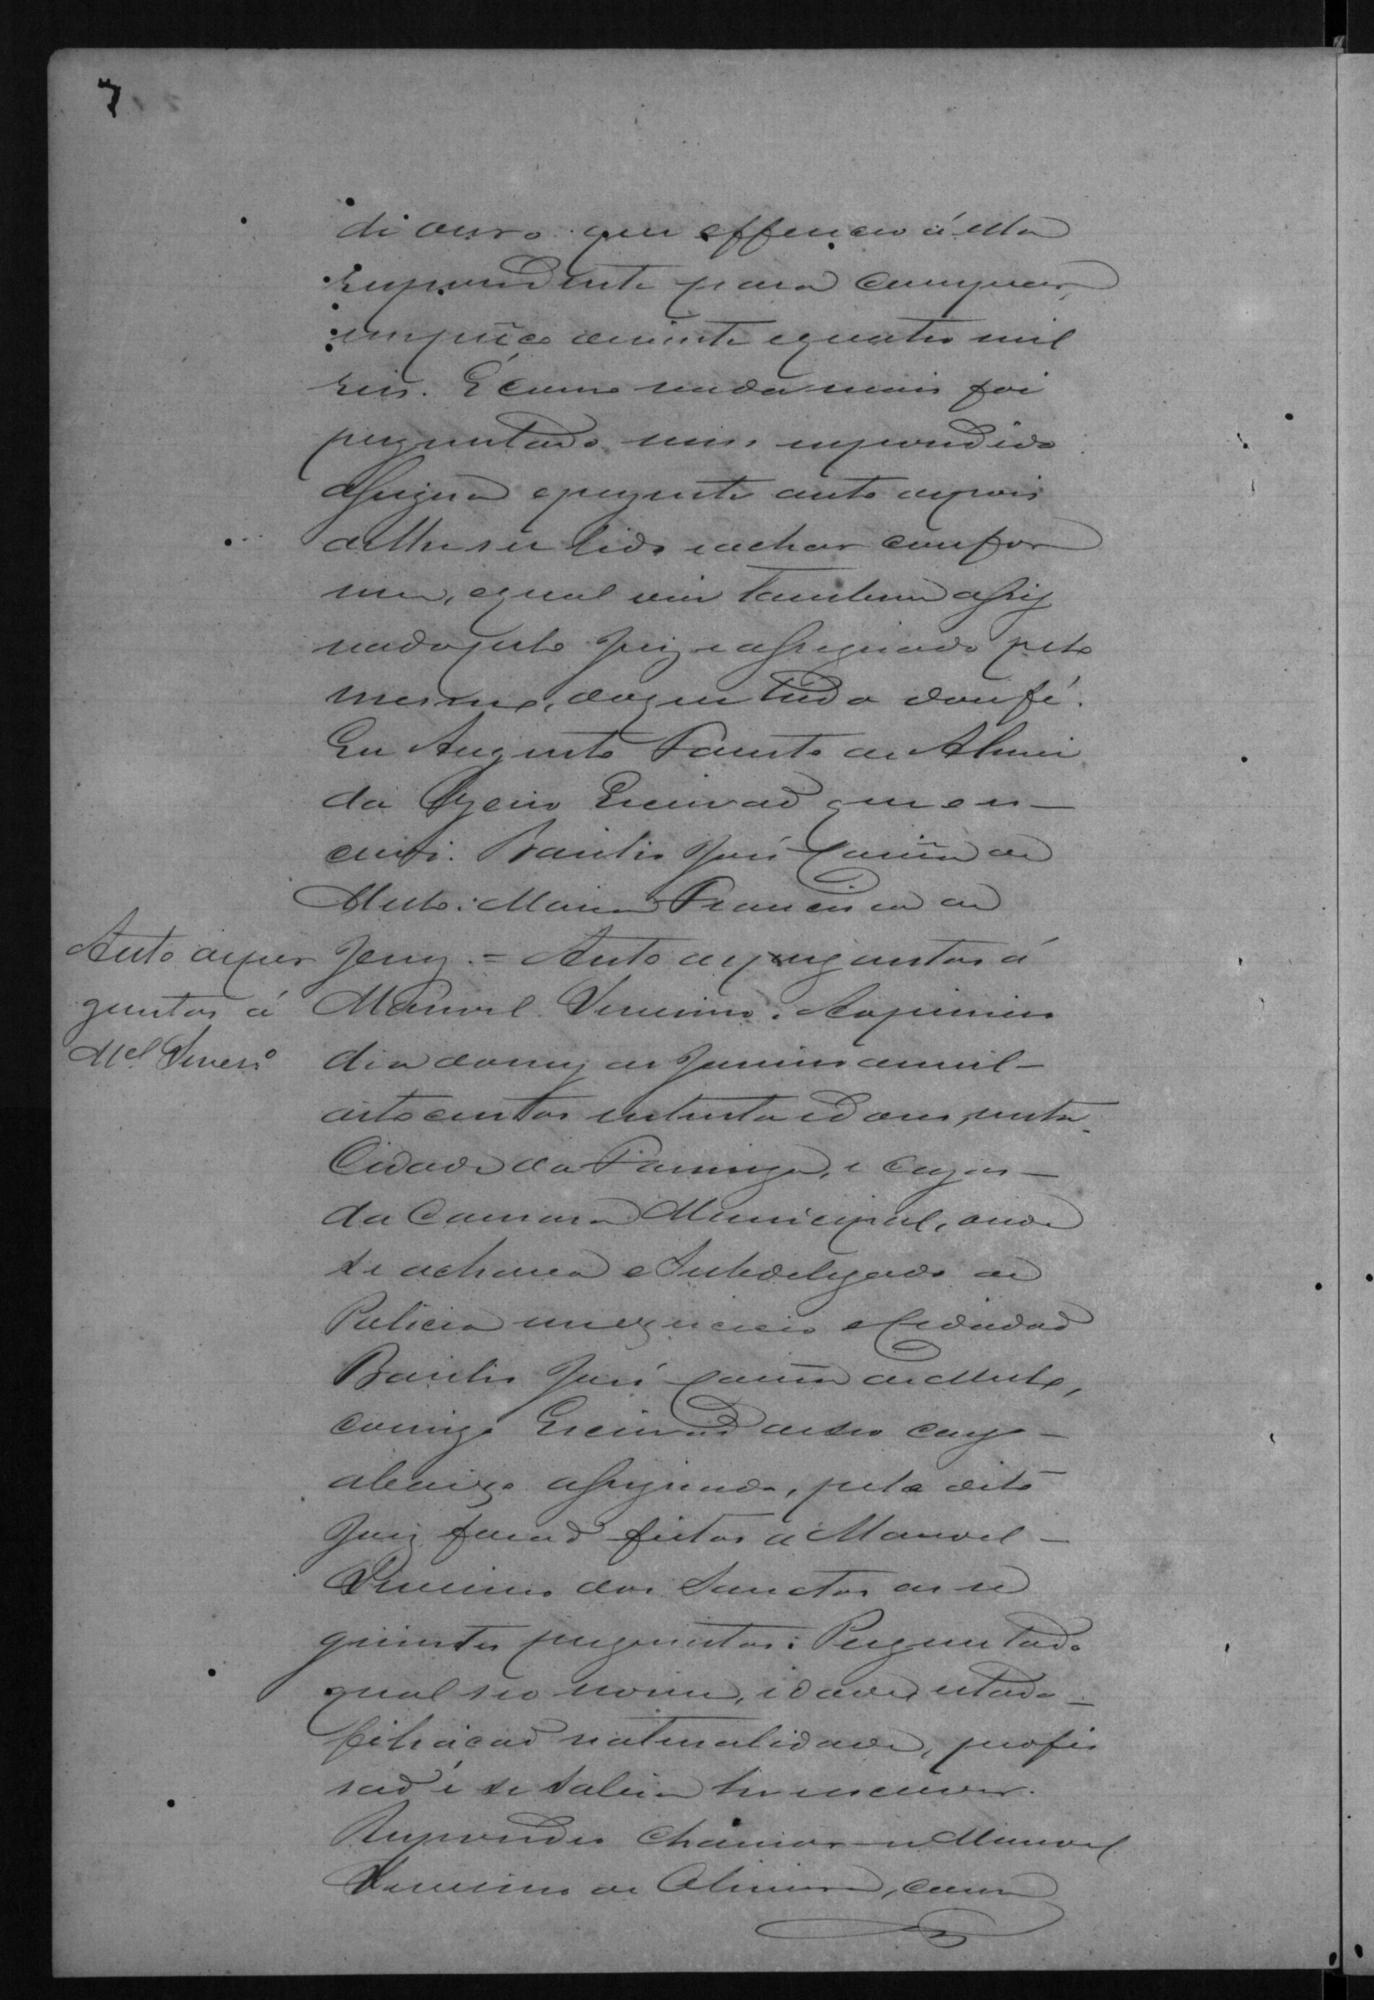 7
de ouro que offereceu á ella
respondente para comprar,
em preço de vinte e quatro mil
reis. E como nada mais foi
perguntado nem respondido
assigna o presente auto depois
de lhe ser lido e achar confor
me, o qual vai tambem assig
nado pelo Juiz e assignado pelo
mesmo, do que tudo dou fé.
Eu Augusto Fausto de Almei
da Escrivaõ que es-
crevi. Basilio José
Mello. Maria Francisca de
Jesus. = Auto de perguntas á
Auto de per
guntas á
Mel. Severº
Manoel Severino. Aos primeiro
dia do mez de Junho de mil
oito centos e trinta e dous, nesta
Cidade da e Caza
da Camara Municipal, onde
se achava o Subdelegado de
Policia em exercicio o Cidadaõ
Basilio José de Mello,
comigo Escrivaõ de seo cargo
abaixo assignado, pelo dito
Juiz foraõ feitas á Manoel
Severino dos Sanctos as se
guintes perguntas: Perguntado
qual seo nome, idade, estado
filiaçaõ naturalidade, profis
saõ é se sabia ler e escrever.
Respondeo chamar-se Manoel
Severino de Oliveira, com